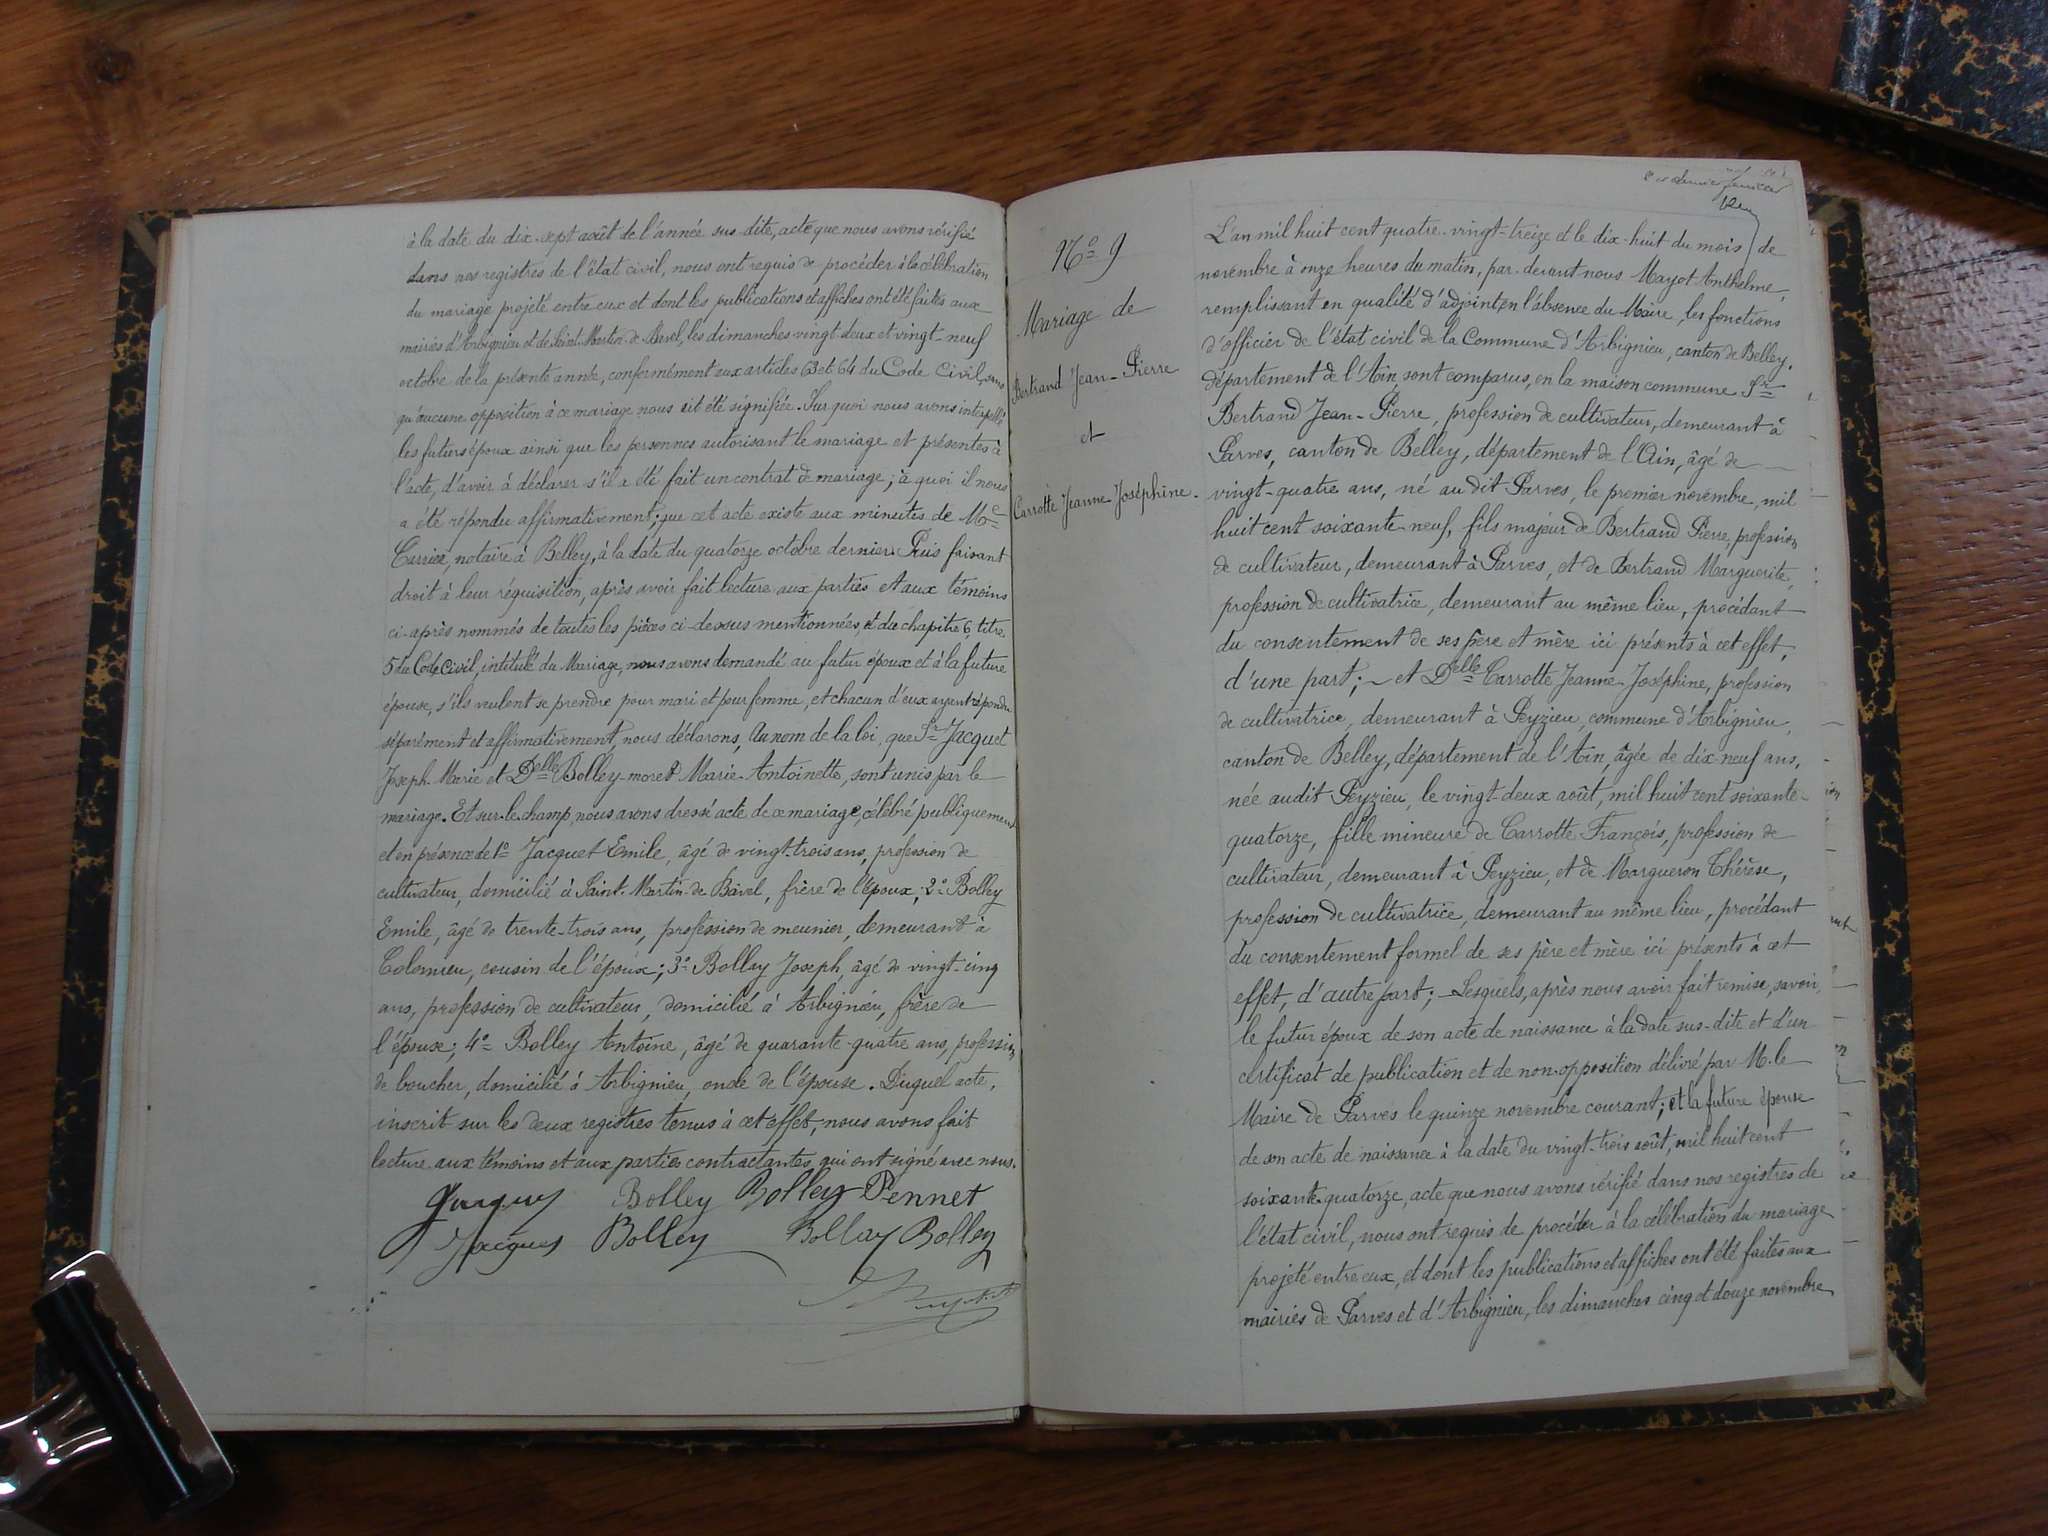 à la date du dix-sept août de l'année sus-dite, acte que nous avons vérifié
dans nos registres de l'état civil, nous ont requis de procéder à la célébration
du mariage projeté entre eux et dont les publications et affiches ont été faites aux
mairies d'Arbignieu et de Saint-Martin-de-Bavel, les dimanches vingt-deux et vingt-neuf
octobre de la présente année, conformément aux articles 63 et 64 du Code Civil, sans
qu'aucune opposition à ce mariage nous ait été signifiée. Sur quoi nous avons interpellé
les futurs époux ainsi que les personnes autorisant le mariage et présentes à
l'acte, d'avoir à déclarer s'il a été fait un contrat de mariage; à quoi il nous
a été répondu affirmativement; que cet acte existe aux minutes de Me
Carrier, notaire à Belley, à la date du quatorze octobre dernier. Puis faisant
droit à leur réquisition, après avoir fait lecture aux parties et aux témoins
ci-après nommés de toutes les pièces ci-dessus mentionnées, et du chapitre 6, titre
5 du Code Civil, intitulé du Mariage, nous avons demandé au futur époux et à la future
épouse, s'ils veulent se prendre pour mari et pour femme, et chacun d'eux ayant répondu
séparément et affirmativement, nous déclarons, Au nom de la loi, que Sr Jacquet
Joseph-Marie et Delle Bolley-moret Marie-Antoinette, sont unis par le
mariage. Et sur-le-champ, nous avons dressé acte de ce mariage, célébré publiquement
et en présence de 1º Jacquet Emile, âgé de vingt-trois ans, profession de
cultivateur, domicilié à Saint-Martin-de-Bavel, frère de l'époux; 2º Bolley
Emile, âgé de trente-trois ans, profession de meunier, demeurant à
Colomieu, cousin de l'épouse; 3º Bolley Joseph, âgé de vingt-cinq
ans, profession de cultivateur, domicilié à Arbignieu, frère de
l'épouse; 4º Bolley Antoine, âgé de quarante-quatre ans, profession
de boucher, domicilié à Arbignieu, oncle de l'épouse. Duquel acte,
inscrit sur les deux registres tenus à cet effet, nous avons fait
lecture aux témoins et aux parties contractantes qui ont signé avec nous.
Bolley Bolley Pennet
Jacquet Bolley Bolley Bolley
Nº 9
Mariage de
Bertrand Jean-Pierre
et
Carrotte Jeanne Joséphine.
L'an mil huit cent quatre-vingt-treize et le dix-huit du mois de
novembre à onze heures du matin, par-devant nous Mayot Anthelme,
remplissant en qualité d'adjoint en l'absence du Maire, les fonctions
d'officier de l'état civil de la Commune d'Arbignieu, canton de Belley,
département de l'Ain, sont comparus, en la maison commune Sr
Bertrand Jean-Pierre, profession de cultivateur, demeurant à
Parves, canton de Belley, département de l'Ain, âgé de
vingt-quatre ans, né audit Parves, le premier novembre, mil
huit cent soixante-neuf, fils majeur de Bertrand Pierre, profession
de cultivateur, demeurant à Parves, et de Bertrand Marguerite,
profession de cultivatrice, demeurant au même lieu, procédant
du consentement de ses père et mère ici présents à cet effet,
d'une part; – et Delle Carrotte Jeanne-Joséphine, profession
de cultivatrice, demeurant à Peyzieu, commune d'Arbignieu,
canton de Belley, département de l'Ain, âgée de dix-neuf ans,
née audit Peyzieu, le vingt-deux août, mil huit cent soixante-
quatorze, fille mineure de Carrotte François, profession de
cultivateur, demeurant à Peyzieu, et de Margueron Thérèse,
profession de cultivatrice, demeurant au même lieu, procédant
du consentement formel de ses père et mère ici présents à cet
effet, d'autre part; – Lesquels, après nous avoir fait remise, savoir,
le futur époux de son acte de naissance à la date sus-dite et d'un
certificat de publication et de non-opposition délivré par M. le
Maire de Parves le quinze novembre courant; et la future épouse
de son acte de naissance à la date du vingt-trois août, mil huit cent
soixante-quatorze, acte que nous avons vérifié dans nos registres de
l'état civil, nous ont requis de procéder à la célébration du mariage
projeté entre eux, et dont les publications et affiches ont été faites aux
mairies de Parves et d'Arbignieu, les dimanches cinq et douze novembre